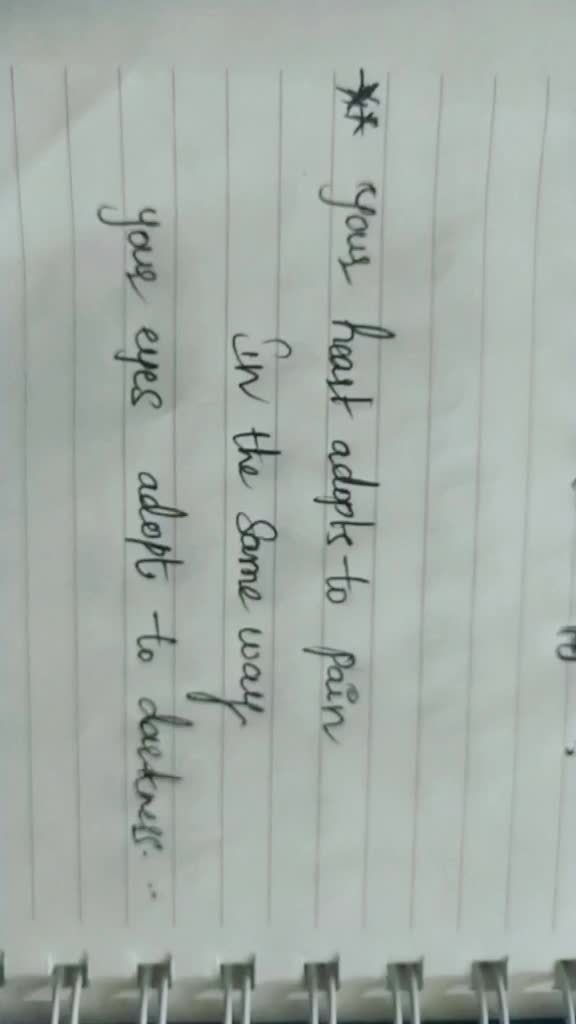 ** Your heart adopts to pain
in the same way
your eyes adopt to darkness. ..